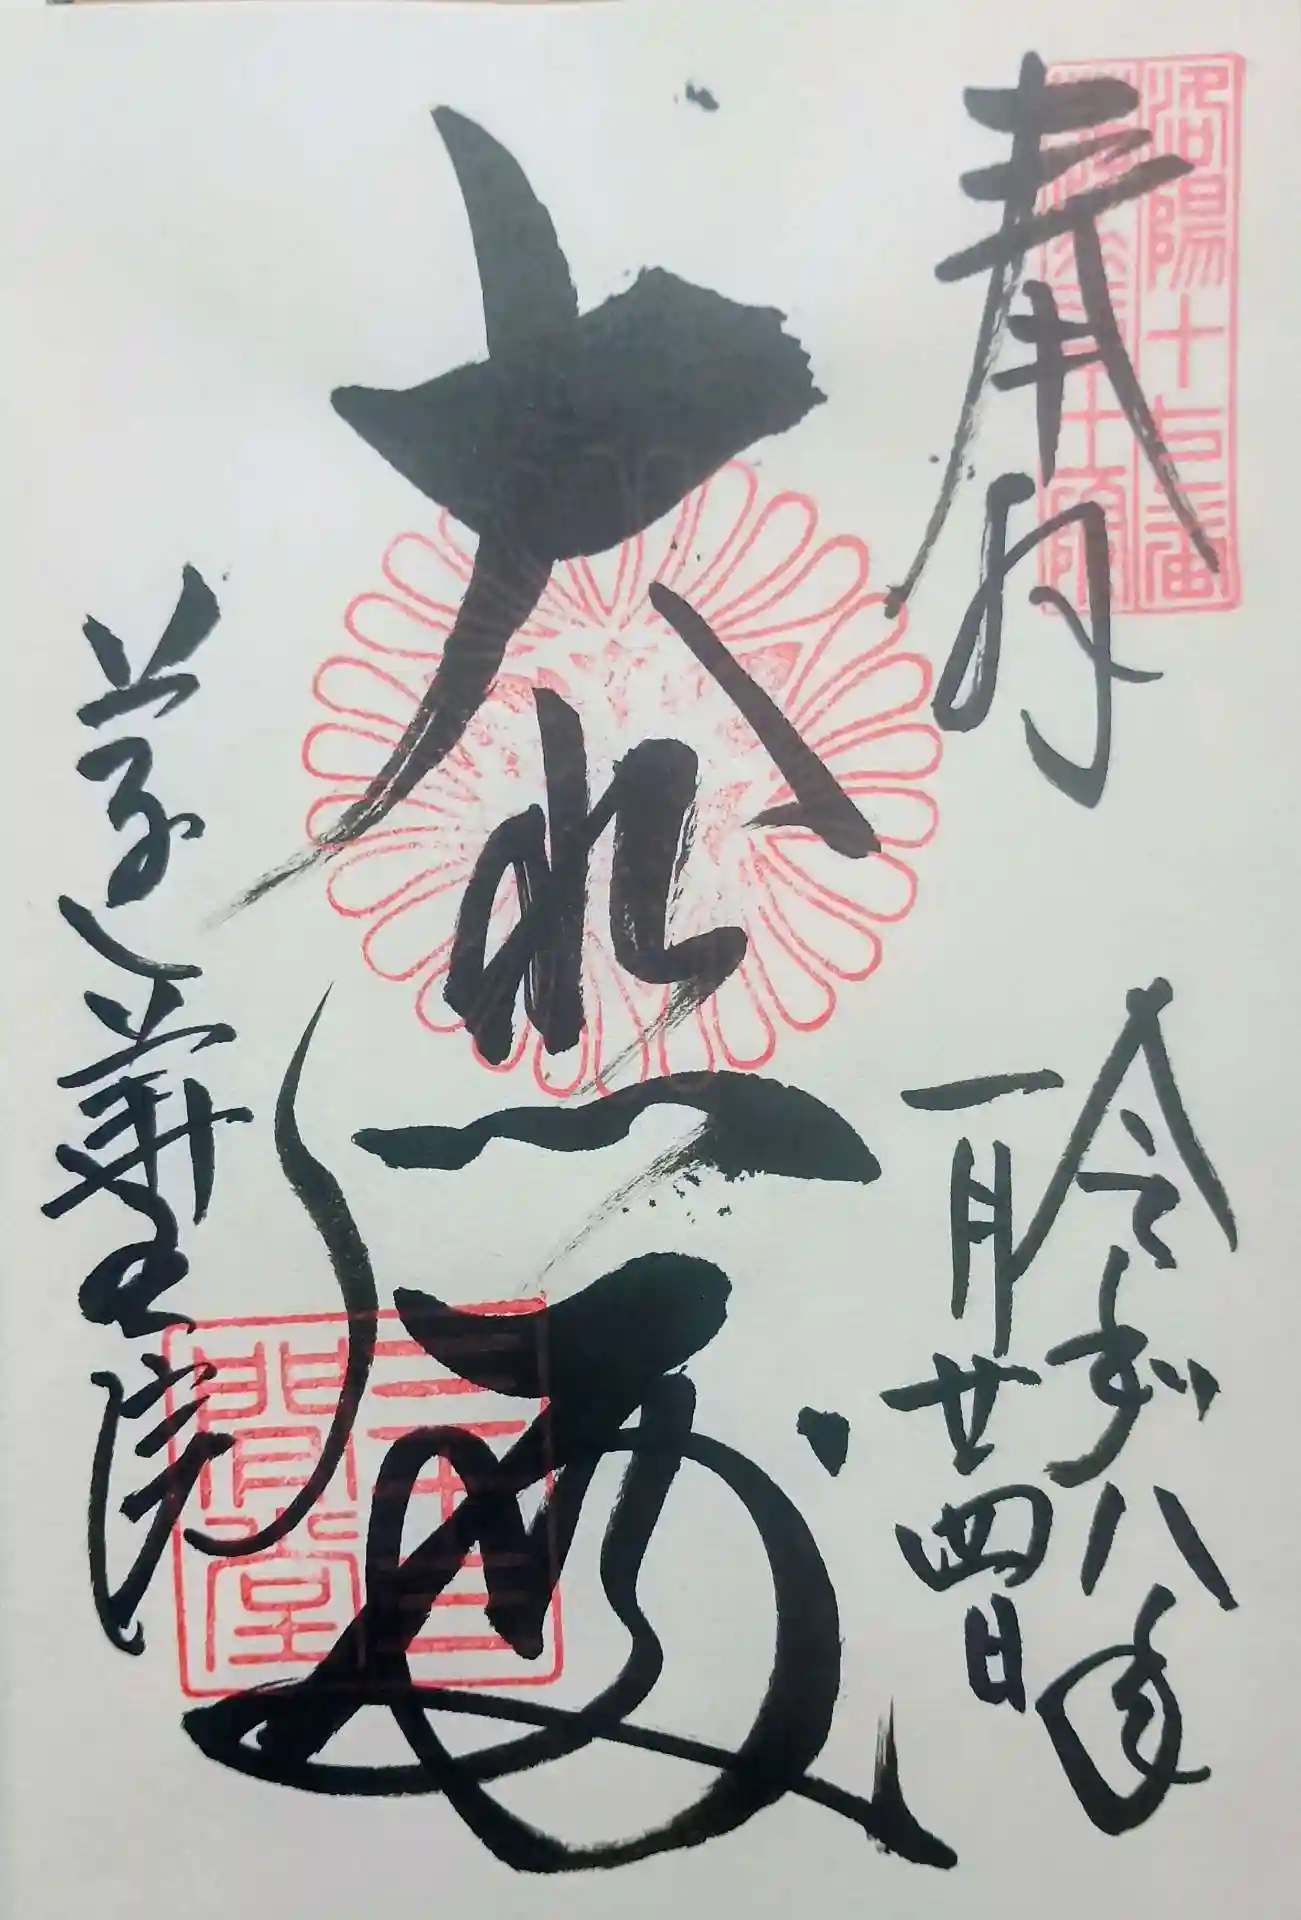 洛陽十七番
奉拝
令和八年
一月廿四日
大悲殿
蓮華王院
三十三
間堂